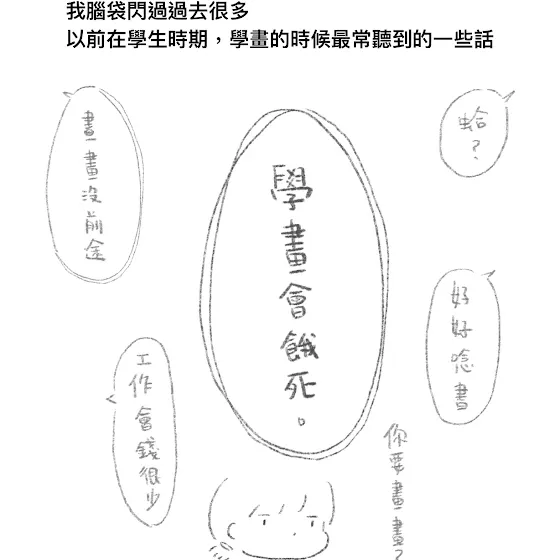 我腦袋閃過過去很多
以前在學生時期，學畫的時候最常聽到的一些話
畫畫沒前途
學畫會餓死。
蛤？
好好唸書
工作會錢很少
你要畫畫？